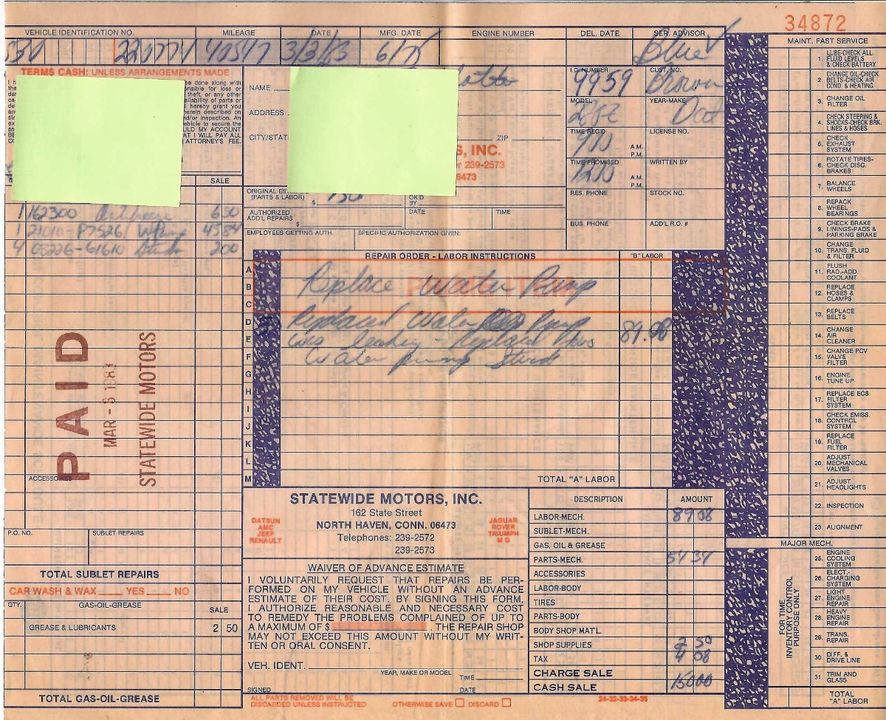 34872
VEHICLE IDENTIFICATION NO. MILEAGE DATE MFG. DATE ENGINE NUMBER DEL. DATE SER. ADVISOR
3/3/83 6/75 Blue
TERMS CASH: UNLESS ARRANGEMENTS MADE
NAME
ADDRESS
CITY/STAT ZIP
S, INC.
r 239-2573
6473
I.D. NUMBER CUST. NO.
9959 Brown
MODEL YEAR-MAKE
Dat
TIME REC'D LICENSE NO.
910 A.M.
P.M.
TIME PROMISED WRITTEN BY
1210 A.M.
P.M.
RES. PHONE STOCK NO.
BUS. PHONE ADD'L R.O. #
ORIGINAL ES
(PARTS & LABOR) $ 150 OK'D
BY
AUTHORIZED
ADD'L REPAIRS $ DATE TIME
EMPLOYEES GETTING AUTH. SPECIFIC AUTHORIZATION GIVEN:
SALE
1 162300 Antifreeze 650
1 21010-P7526 W/Pump 4584
4 08226-61610 Studs 200
PAID
MAR - 3 1983
STATEWIDE MOTORS
ACCESSORIES
P.O. NO. SUBLET REPAIRS
TOTAL SUBLET REPAIRS
CAR WASH & WAX YES NO
QTY. GAS-OIL-GREASE SALE
GREASE & LUBRICANTS 2 50
TOTAL GAS-OIL-GREASE
REPAIR ORDER - LABOR INSTRUCTIONS "B" LABOR
A
B Replace Water Pump
C
D Replaced Water Pump
E Was leaking - Replaced 89.08
F Water pump Studs
G
H
I
J
K
L
M TOTAL "A" LABOR
STATEWIDE MOTORS, INC.
162 State Street
NORTH HAVEN, CONN. 06473
Telephones: 239-2572
239-2573
DATSUN
AMC
JEEP
RENAULT
JAGUAR
ROVER
TRIUMPH
M G
WAIVER OF ADVANCE ESTIMATE
I VOLUNTARILY REQUEST THAT REPAIRS BE PER-
FORMED ON MY VEHICLE WITHOUT AN ADVANCE
ESTIMATE OF THEIR COST. BY SIGNING THIS FORM,
I AUTHORIZE REASONABLE AND NECESSARY COST
TO REMEDY THE PROBLEMS COMPLAINED OF UP TO
A MAXIMUM OF $ THE REPAIR SHOP
MAY NOT EXCEED THIS AMOUNT WITHOUT MY WRIT-
TEN OR ORAL CONSENT.
VEH. IDENT.
YEAR, MAKE OR MODEL TIME
SIGNED DATE
ALL PARTS REMOVED WILL BE
DISCARDED UNLESS INSTRUCTED OTHERWISE SAVE DISCARD
DESCRIPTION AMOUNT
LABOR-MECH. 89 08
SUBLET-MECH.
GAS, OIL & GREASE
PARTS-MECH. 54 34
ACCESSORIES
LABOR-BODY
TIRES
PARTS-BODY
BODY SHOP MAT'L.
SHOP SUPPLIES 2 50
TAX 4 08
CHARGE SALE
CASH SALE 150 00
24-32-33-34-35
MAINT. FAST SERVICE
1. LUBE-CHECK ALL FLUID LEVELS & CHECK BATTERY
2. CHANGE OIL-CHECK BELTS-CHECK AIR COND. & HEATING
3. CHANGE OIL FILTER
4. CHECK STEERING & SHOCKS-CHECK BRK. LINES & HOSES
5. CHECK EXHAUST SYSTEM
6. ROTATE TIRES-CHECK DISC. BRAKES
7. BALANCE WHEELS
8. REPACK WHEEL BEARINGS
9. CHECK BRAKE LININGS-PADS & PARKING BRAKE
10. CHANGE TRANS. FLUID & FILTER
11. FLUSH RAD.-ADD. COOLANT
12. REPLACE HOSES & CLAMPS
13. REPLACE BELTS
14. CHANGE AIR CLEANER
15. CHANGE PCV VALVE FILTER
16. ENGINE TUNE UP
17. REPLACE ECS FILTER SYSTEM
18. CHECK EMISS. CONTROL SYSTEM
19. REPLACE FUEL FILTER
20. ADJUST MECHANICAL VALVES
21. ADJUST HEADLIGHTS
22. INSPECTION
23. ALIGNMENT
MAJOR MECH.
FOR TIME
INVENTORY CONTROL
PURPOSE ONLY
25. ENGINE COOLING SYSTEM
26. ELECT.- CHARGING SYSTEM
27. LIGHT ENGINE REPAIR
28. HEAVY ENGINE REPAIR
29. TRANS. REPAIR
30. DIFF. & DRIVE LINE
31. TRIM AND GLASS
TOTAL
"A" LABOR